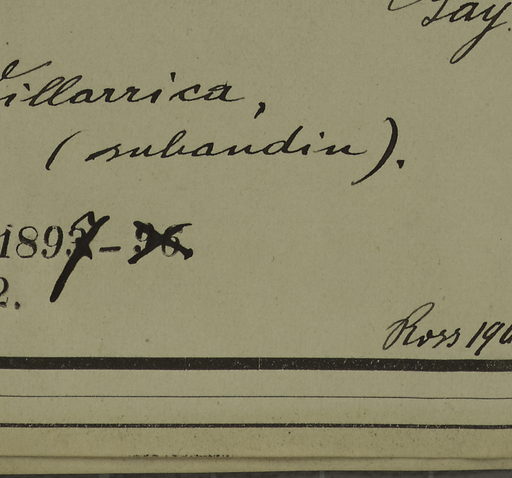 Gay.
Villarrica,
(subandin).
1897-
2.
Ross 19